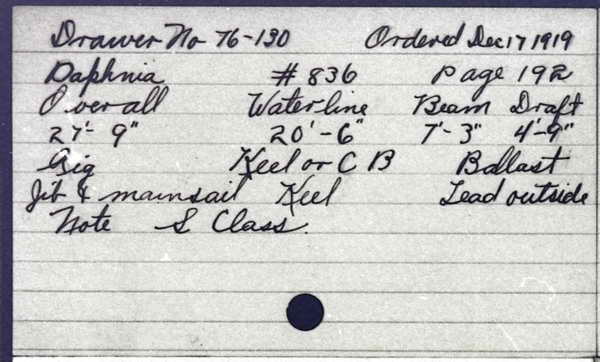 Drawer No 76-130 Ordered Dec 17 1919
Daphnia #836 Page 192
Over all Waterline Beam Draft
27'-9" 20'-6" 7'-3" 4'-9"
Rig Keel or C B Ballast
Jib & mainsail Keel Lead outside
Note S Class.